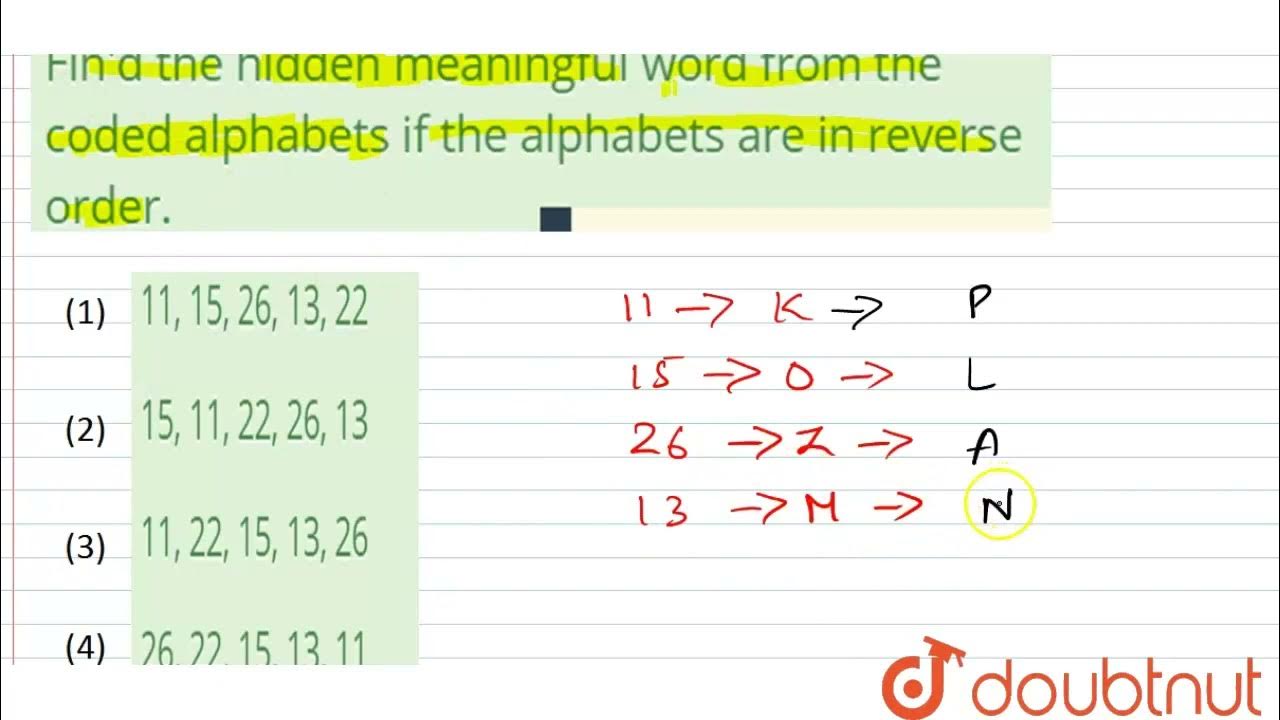 Find the hidden meaningful word from the
coded alphabets if the alphabets are in reverse
order.
(1) 11, 15, 26, 13, 22
(2) 15, 11, 22, 26, 13
(3) 11, 22, 15, 13, 26
(4) 26, 22, 15, 13, 11
11 → K → P
15 → O → L
26 → Z → A
13 → M → N
doubtnut